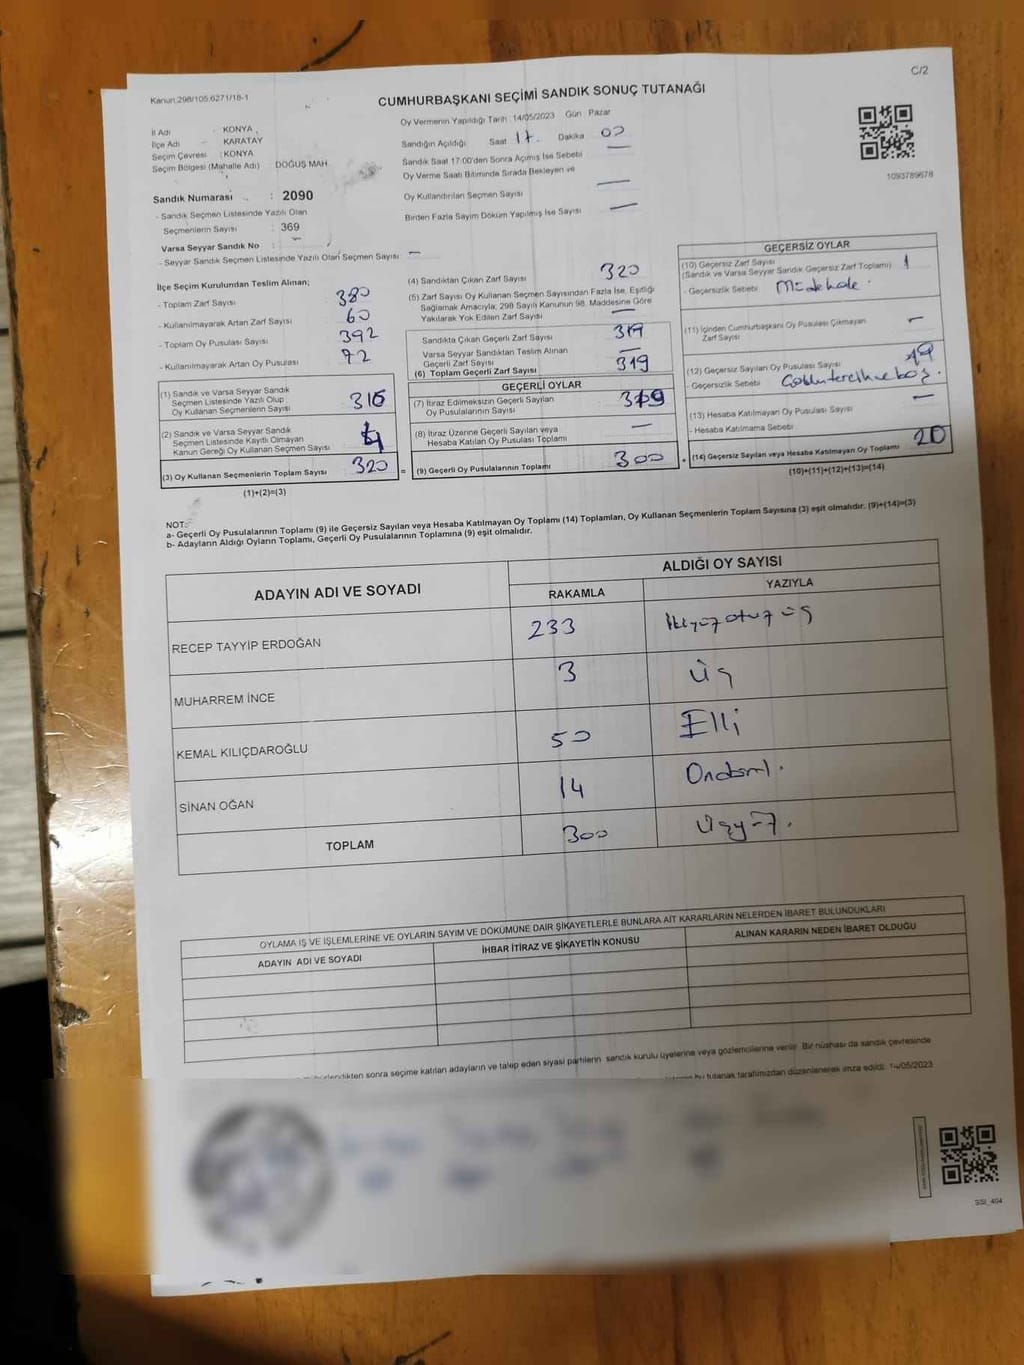 C/2
Kanun:298/105.6271/18-1
CUMHURBAŞKANI SEÇİMİ SANDIK SONUÇ TUTANAĞI
Oy Vermenin Yapıldığı Tarih 14/05/2023 Gün Pazar
İl Adı : KONYA
İlçe Adı : KARATAY
Seçim Çevresi : KONYA
Seçim Bölgesi (Mahalle Adı) DOĞUŞ MAH.
Sandığın Açıldığı Saat 17. Dakika 00
Sandık Saat 17:00'den Sonra Açılmış İse Sebebi —
Oy Verme Saati Bitiminde Sırada Bekleyen ve
Oy Kullandırılan Seçmen Sayısı —
Birden Fazla Sayım Döküm Yapılmış İse Sayısı —
1093789678
Sandık Numarası : 2090
- Sandık Seçmen Listesinde Yazılı Olan
Seçmenlerin Sayısı : 369
Varsa Seyyar Sandık No : —
- Seyyar Sandık Seçmen Listesinde Yazılı Olan Seçmen Sayısı: —
İlçe Seçim Kurulundan Teslim Alınan;
- Toplam Zarf Sayısı 380
- Kullanılmayarak Artan Zarf Sayısı 60
- Toplam Oy Pusulası Sayısı 392
- Kullanılmayarak Artan Oy Pusulası 72
(1) Sandık ve Varsa Seyyar Sandık
Seçmen Listesinde Yazılı Olup
Oy Kullanan Seçmenlerin Sayısı 316
(2) Sandık ve Varsa Seyyar Sandık
Seçmen Listesinde Kayıtlı Olmayan
Kanun Gereği Oy Kullanan Seçmen Sayısı 4
(3) Oy Kullanan Seçmenlerin Toplam Sayısı 320 =
(1)+(2)=(3)
(4) Sandıktan Çıkan Zarf Sayısı 320
(5) Zarf Sayısı Oy Kullanan Seçmen Sayısından Fazla İse, Eşitliği
Sağlamak Amacıyla; 298 Sayılı Kanunun 98. Maddesine Göre
Yakılarak Yok Edilen Zarf Sayısı —
Sandıkta Çıkan Geçerli Zarf Sayısı 319
Varsa Seyyar Sandıktan Teslim Alınan
Geçerli Zarf Sayısı —
(6) Toplam Geçerli Zarf Sayısı 319
GEÇERLİ OYLAR
(7) İtiraz Edilmeksizin Geçerli Sayılan
Oy Pusulalarının Sayısı
(8) İtiraz Üzerine Geçerli Sayılan veya
Hesaba Katılan Oy Pusulası Toplamı —
(9) Geçerli Oy Pusulalarının Toplamı 300
GEÇERSİZ OYLAR
(10) Geçersiz Zarf Sayısı 1
(Sandık ve Varsa Seyyar Sandık Geçersiz Zarf Toplamı)
- Geçersizlik Sebebi Müdehale.
(11) İçinden Cumhurbaşkanı Oy Pusulası Çıkmayan
Zarf Sayısı —
(12) Geçersiz Sayılan Oy Pusulası Sayısı 19
- Geçersizlik Sebebi
(13) Hesaba Katılmayan Oy Pusulası Sayısı —
- Hesaba Katılmama Sebebi
(14) Geçersiz Sayılan veya Hesaba Katılmayan Oy Toplamı 20
(10)+(11)+(12)+(13)=(14)
NOT:
a- Geçerli Oy Pusulalarının Toplamı (9) ile Geçersiz Sayılan veya Hesaba Katılmayan Oy Toplamı (14) Toplamları, Oy Kullanan Seçmenlerin Toplam Sayısına (3) eşit olmalıdır. (9)+(14)=(3)
b- Adayların Aldığı Oyların Toplamı, Geçerli Oy Pusulalarının Toplamına (9) eşit olmalıdır.
ADAYIN ADI VE SOYADI
ALDIĞI OY SAYISI
RAKAMLA YAZIYLA
RECEP TAYYİP ERDOĞAN 233 İkiyüzotuzüç
MUHARREM İNCE 3 Üç
KEMAL KILIÇDAROĞLU 50 Elli
SİNAN OĞAN 14 Ondört.
TOPLAM 300 Üçyüz.
OYLAMA İŞ VE İŞLEMLERİNE VE OYLARIN SAYIM VE DÖKÜMÜNE DAİR ŞİKAYETLERLE BUNLARA AİT KARARLARIN NELERDEN İBARET BULUNDUKLARI
ADAYIN ADI VE SOYADI İHBAR İTİRAZ VE ŞİKAYETİN KONUSU ALINAN KARARIN NEDEN İBARET OLDUĞU
sonra seçime katılan adayların ve talep eden siyasi partilerin sandık kurulu üyelerine veya gözlemcilerine verilir. Bir nüshası da sandık çevresinde
bu tutanak tarafımızdan düzenlenerek imza edildi. 14/05/2023